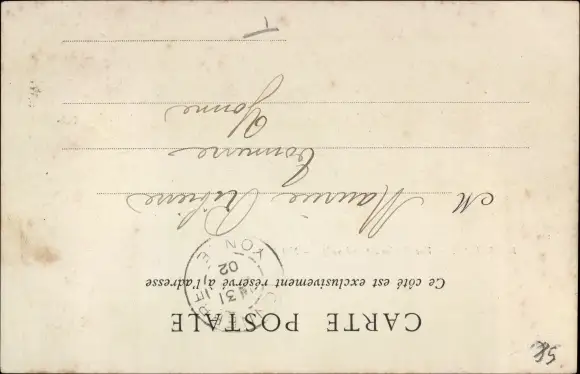 CARTE POSTALE
Ce côté est exclusivement réservé à l'adresse
31
02
YON
M Maurice Ribière
Tonnerre
Yonne